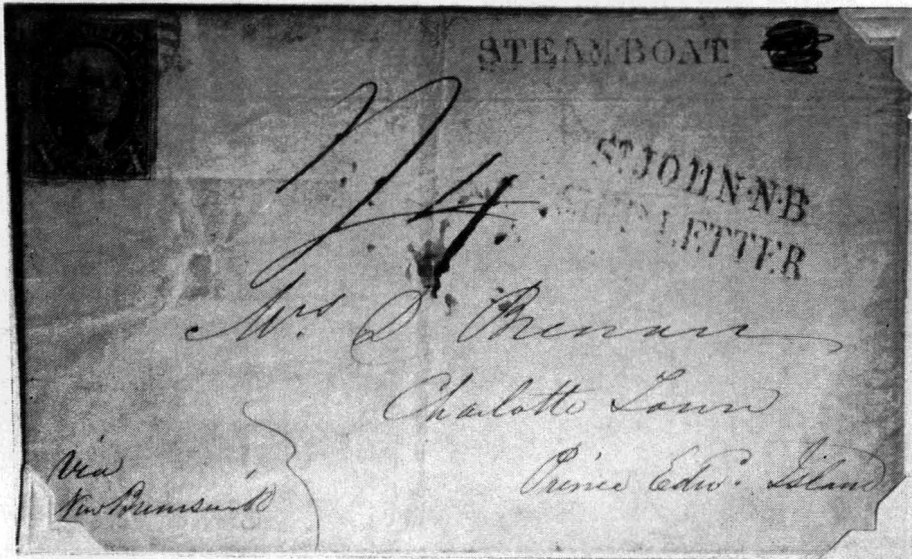 STEAM·BOAT
X X
ST JOHN·N·B
SHIP LETTER
4
Mrs D Brenan
Charlotte Town
Prince Edwd. Island
Via
New Brunswick